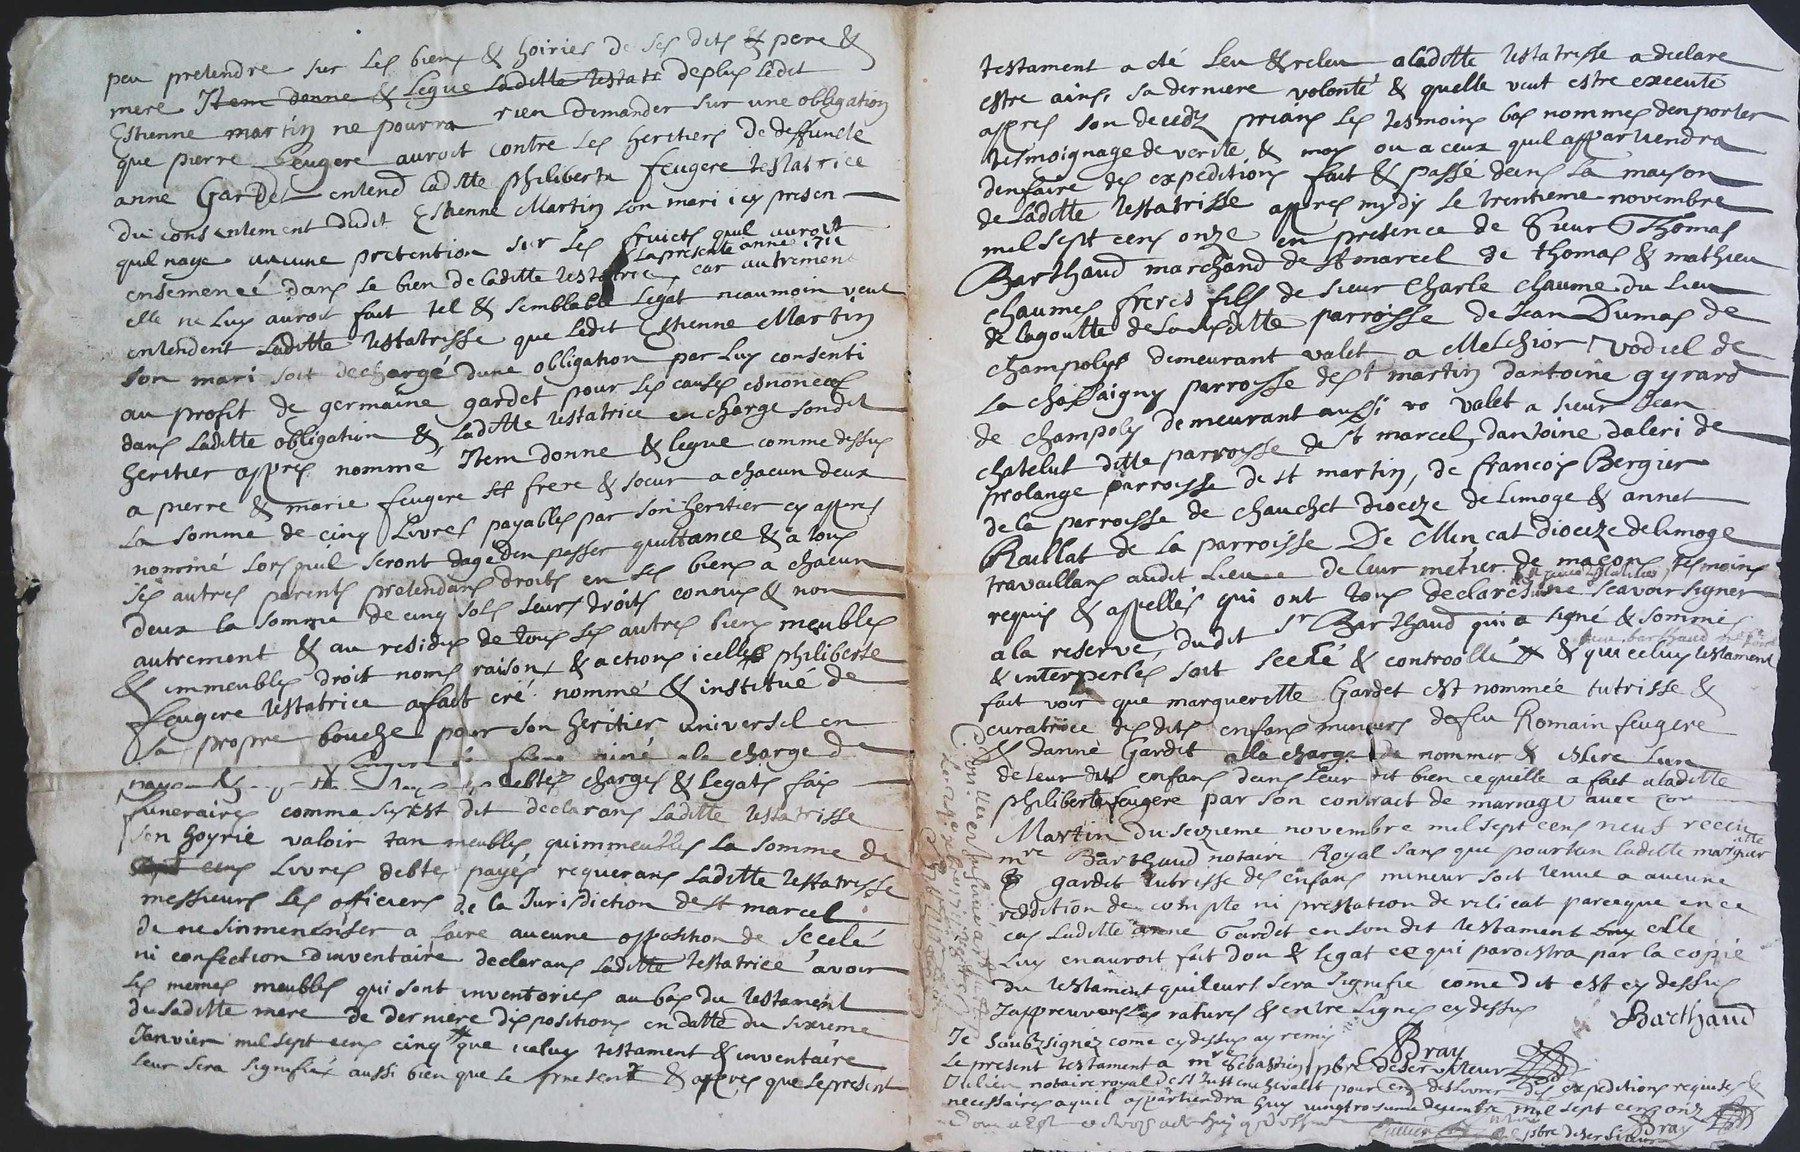 peu pretendre sur les biens & hoiries de ses dits pere &
mere Item donne & legue laditte testatr deplus ledit
Estienne martin ne pourra rien demander sur une obligation
que pierre feugere auroit contre les heritiers de deffuncte
anne Gardet entend laditte philiberte feugere testatrice
du consentement dudit Estienne Martin son mari icy presen
quil naye aucune pretention sur les fruicts quil auroit
ensemencé dans le bien de laditte testatrice la presente anne 1711 car autrement
elle ne luy auroit fait tel & semblable legat neaumoin veut
entendent laditte testatrisse que ledit Estienne Martin
son mari soit dechargé dune obligation par luy consenti
au profit de germaine gardet pour les causes enoncees
dans laditte obligation & laditte testatrice en charge sondit
heritier appres nommé Item donne & legue comme dessus
a pierre & marie feugere frere & soeur a chacun deux
la somme de cinq livres payables par son heritier cy appres
nommé lors quil seront dage den passer quittance & a tous
ses autres parents pretendans droits en ses biens a chacun
deux la somme de cinq sols leurs droits connus & non
autrement & au residus de tous ses autres biens meubles
& immeubles droit noms raisons & actions icelle philiberte
feugere testatrice a fait cré nommé & institué de
sa propre bouche pour son heritier universel en
a la charge de
debtes charges & legats fais
funeraires comme sus est dit declarans laditte testatrisse
son hoyrie valoir tan meubles quimmeubles la somme de
cens livres debtes payés requerans laditte testatrisse
messieurs les officiers de la Jurisdiction de st marcel
de ne simmencinser a faire aucune opposition de scelé
ni confection dinventaire declarans laditte testatrice avoir
les memes meubles qui sont inventories au bas du testament
du laditte mere de derniere dispositions en datte du sixieme
Janvier mil sept cens cinq que iceluy testament & inventaire
leur sera signifiés aussi bien que le present & appres que le present
testament a eté leu & releu a laditte testatrisse a declare
estre ainsi sa derniere volonté & quelle veut estre executé
appres son decedz prians les tesmoins bas nommes den porter
tesmoignage de verité & moy ou a ceux quil appartiendra
den faire des expeditions fait & passé dans la maison
de laditte testatrisse appres mydy le trentieme novembre
mil sept cens onze en presence de sieur Thomas
Barthaud marchand de st marcel de thomas & mathieu
chaumes freres fils de sieur Charle chaume du lieu
de lagoutte de la susditte parroisse de Jean Dumas de
champoly demeurant valet a Melchior vodiel de
la chassaigny parroisse de st martin dantoine gyrard
de champoly demeurant aussi valet a sieur Jean
chatelut ditte parroisse de st marcel, dantoine daleri de
prolange parroisse de st martin, de francois Bergier
de la parroisse de chauchet diocize de limoge & annet
Raillat de la parroisse De Mincat diocize de limoge
travaillans audit lieu de leur métier de maçons tesmoins
requis & appellés qui ont tous declarés ne scavoir signer
a la reserve, dudit sr Barthaud qui a signé & sommé
& interperlés soit scelé & controollé & que celuy testament
fait voir que margueritte Gardet est nommée tutrisse &
curatrice des dits enfans mineurs de feu Romain feugere
& danne Gardet a la charge de nommer & eslire lun
de leur dits enfans dans leur dit bien ce quelle a fait a laditte
philiberte feugere par son contract de mariage avec
Martin du seizieme novembre mil sept cens neuf receu
mre Barthaud notaire Royal sans que pourtan laditte marguer itte
gardet tutrisse des enfans mineur soit tenue a aucune
reddition de compte ni prestation de relicat parceque en ce
cas laditte anne Gardet en son dit testament elle
luy en auroit fait don & legat ce qui paroistra par la copie
du testament qui leurs sera signifié come dit est cy dessus
Japprouvons les ratures & entre lignes cy dessus
Barthaud
Je soubzsignez come cy dessus ay remis
Bray
le present testament a mr Sebastien pbre deserviteur
Julien notaire royal de st Just en chevalet pour en deslivrer des expeditions requises &
necessaires a quil appartiendra huy vingtrosieme decembre mil sept cens onz
Bray
pbre deserviteur